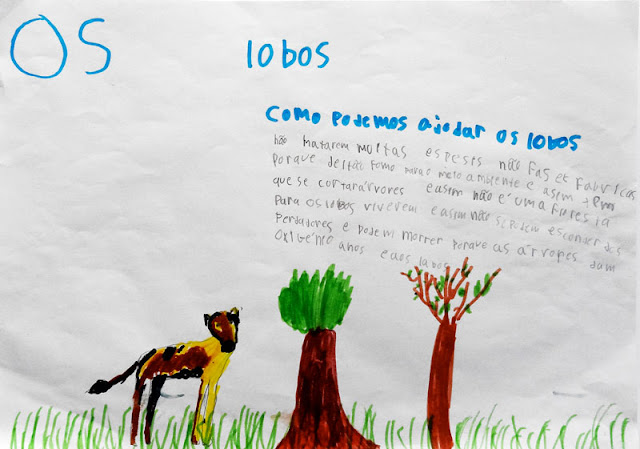 Os lobos
como podemos ajodar os lobos
não matarem muitas espesis não fas et fabricas
porque deitão fomo para o meio ambiente e asim tem
que se cortar árvores e asim não é uma fluresta
para os lobos viverem e asim não se podem esconder dos
perdadores e podem morrer porque as arvores dam
oxigénio anos e aos lobos